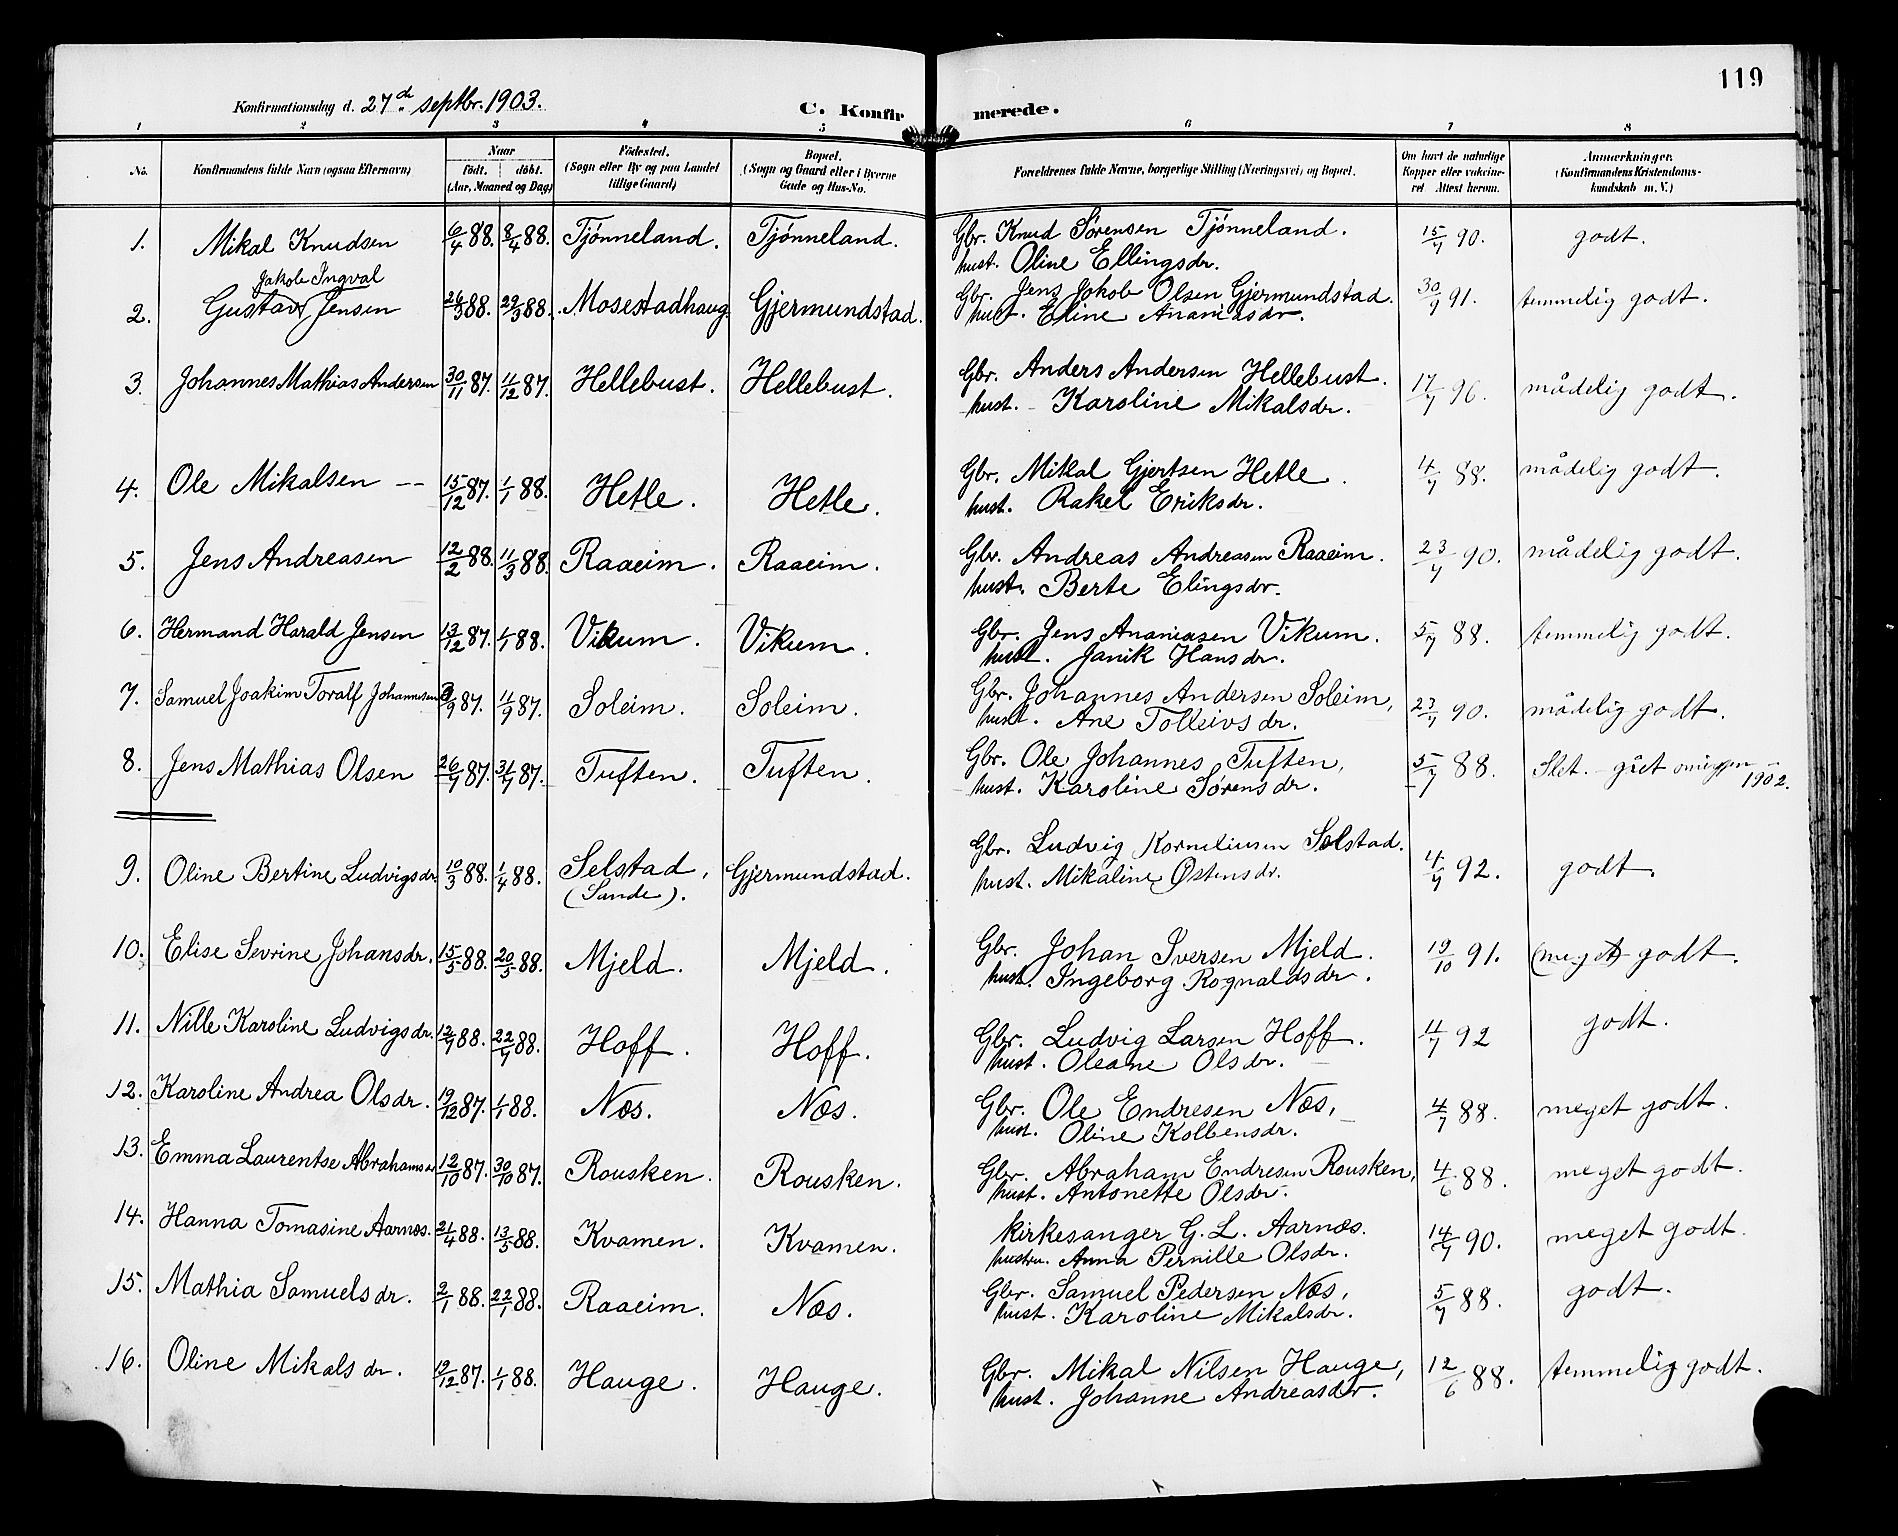 119
Konfirmationsdag d. 27de septbr. 1903. C. Konfirmerede.
1 2 3 4 5 6 7 8
No. Konfirmandens fulde Navn (ogsaa Efternavn) Naar født. døbt. (Aar, Maaned og Dag) Fødested. (Sogn eller By og paa Landet tillige Gaard) Bopæl. (Sogn og Gaard eller i Byerne Gade og Hus-No. Forældrenes fulde Navne, borgerlige Stilling (Næringsvei) og Bopæl. Om havt de naturlige Kopper eller vaksineret Attest herom. Anmærkninger. (Konfirmandens Kristendomskundskab m. V.)
1. Mikal Knudsen 6/4 88. 8/4 88. Tjønneland. Tjønneland. Gbr. Knud Sørensen Tjønneland. 15/7 90. godt.
hust. Oline Ellingsdr.
Jakob Ingval
2. Gustav Jensen 26/3 88. 29/3 88. Mosestadhaug Gjermundstad. Gbr. Jens Jakob Olsen Gjermundstad. 30/9 91. temmelig godt.
hust. Eline Ananiasdr.
3. Johannes Mathias Andersen 30/11 87. 11/12 87. Hellebust. Hellebust. Gbr. Anders Andersen Hellebust. 17/7 96. mådelig godt.
hust. Karoline Mikalsdr.
4. Ole Mikalsen -- 15/12 87. 1/1 88. Hetle. Hetle. Gbr. Mikal Gjertsen Hetle. 4/7 88. mådelig godt.
hust. Rakel Eriksdr.
5. Jens Andreasen 12/2 88. 11/3 88. Raaeim. Raaeim. Gbr. Andreas Andreasen Raaeim. 23/7 90. mådelig godt.
hust. Berte Elingsdr.
6. Hermand Harald Jensen 13/12 87. 1/1 88. Vikum. Vikum. Gbr. Jens Ananiasen Vikum. 5/7 88. temmelig godt.
hust. Janik Hansdr.
7. Samuel Joakim Toralf Johannesen /9 87. 11/9 87. Soleim. Soleim. Gbr. Johannes Andersen Soleim, 23/7 90. mådelig godt.
hust. Ane Tolleivsdr.
8. Jens Mathias Olsen 26/7 87. 31/7 87. Tuften. Tuften. Gbr. Ole Johannes Tuften, 5/7 88. Slet. gået 1902.
hust. Karoline Sørensdr.
9. Oline Bertine Ludvigsdr. 10/3 88. 1/4 88. Selstad, (Sande). Gjermundstad. Gbr. Ludvig Korneliusen Selstad. 4/7 92. godt.
hust. Mikaline Østensdr.
10. Elise Sevrine Johansdr. 15/5 88. 20/5 88. Mjeld. Mjeld. Gbr. Johan Iversen Mjeld. 19/10 91. (meget) godt.
hust. Ingeborg Rognaldsdr.
11. Nille Karoline Ludvigsdr. 12/7 88. 22/7 88. Hoff. Hoff. Gbr. Ludvig Larsen Hoff. 4/7 92 godt.
hust. Oleane Olsdr.
12. Karoline Andrea Olsdr. 19/12 87. 1/1 88. Næs. Næs. Gbr. Ole Endresen Næs, 4/7 88. meget godt.
hust. Oline Kolbensdr.
13. Emma Laurentse Abrahamsdr 12/10 87. 30/10 87. Rousken. Rousken. Gbr. Abraham Endresen Rousken, 4/6 88. meget godt.
hust. Antonette Olsdr.
14. Hanna Tomasine Aarnæs. 21/4 88. 13/5 88. Kvamen. Kvamen. Kirkesanger G. L. Aarnæs. 14/7 90. meget godt.
hustru. Anna Pernille Olsdr.
15. Mathia Samuelsdr. 2/1 88. 22/1 88. Raaeim. Næs. Gbr. Samuel Pedersen Næs, 5/7 88. godt.
hust. Karoline Mikalsdr.
16. Oline Mikalsdr. 19/12 87. 1/1 88. Hauge. Hauge. Gbr. Mikal Nilsen Hauge, 12/6 88. temmelig godt.
hust. Johanne Andreasdr.